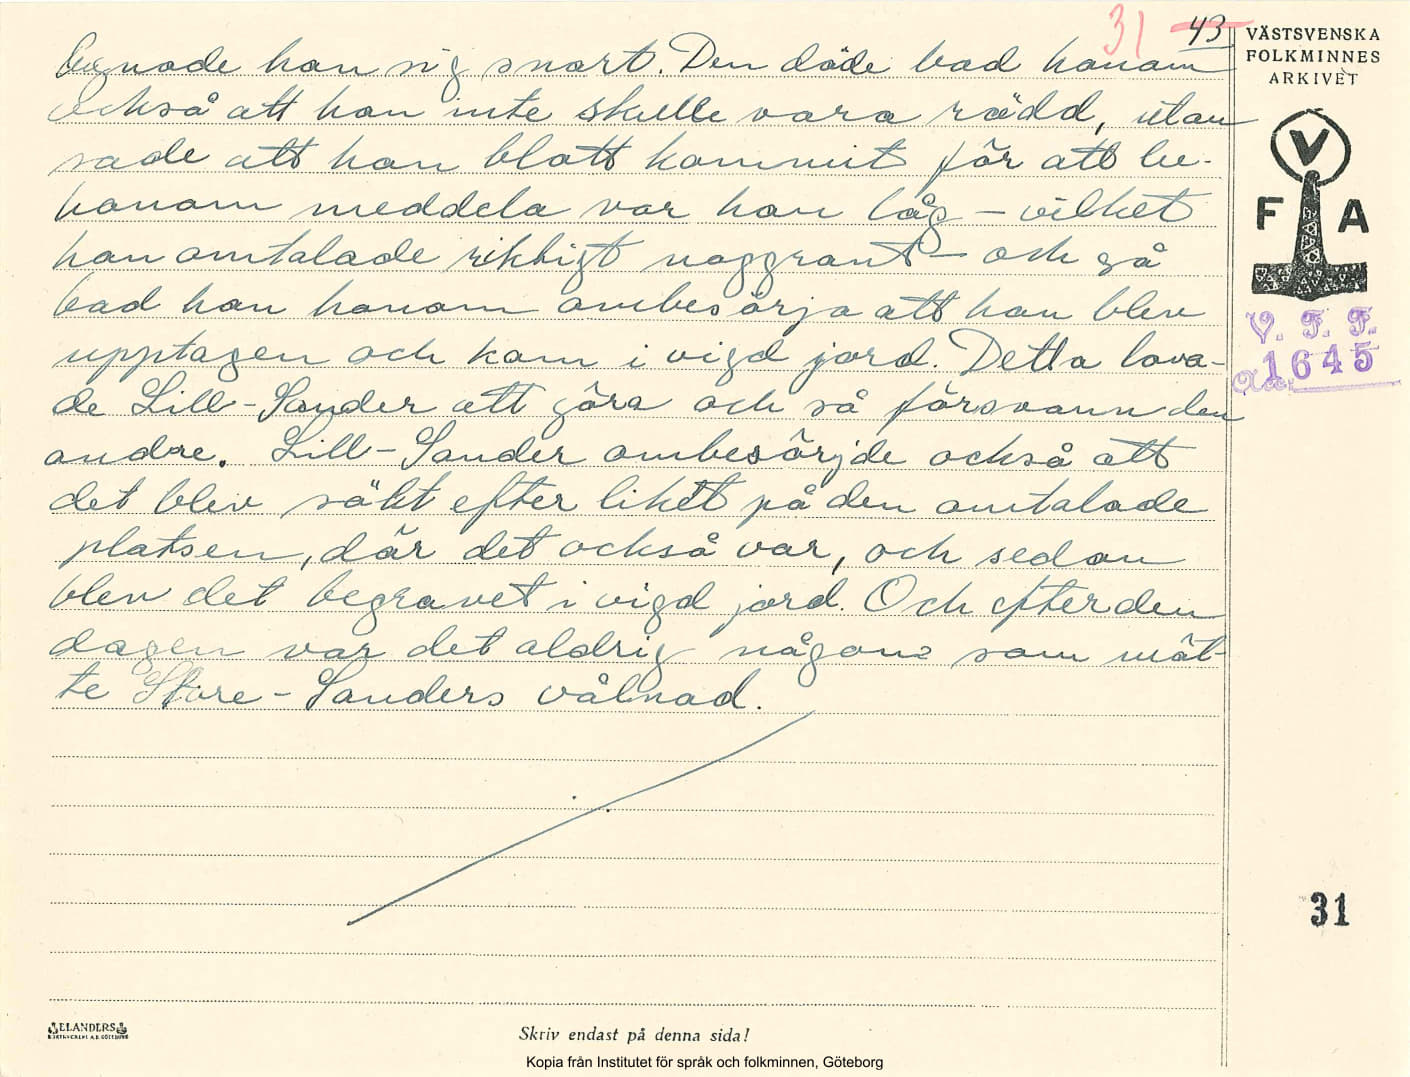 31 43
VÄSTSVENSKA
FOLKMINNES
ARKIVET
nade han sig snart. Den döde bad honom
också att han inte skulle vara rädd, utan
sade att han blott kommit för att be-
honom meddela var han låg – vilket
han omtalade riktigt noggrant – och så
bad han honom ombesörja att han blev
upptagen och kom i vigd jord. Detta lova-
de Lill-Sander att göra och så försvann den
andre. Lill-Sander ombesörjde också att
det blev sökt efter liket på den omtalade
platsen, där det också var, och sedan
blev det begravet i vigd jord. Och efter den
dagen var det aldrig någon som möt-
te Store-Sanders vålnad.
V
F A
V. F. F.
1645
31
ELANDERS
Skriv endast på denna sida!
Kopia från Institutet för språk och folkminnen, Göteborg